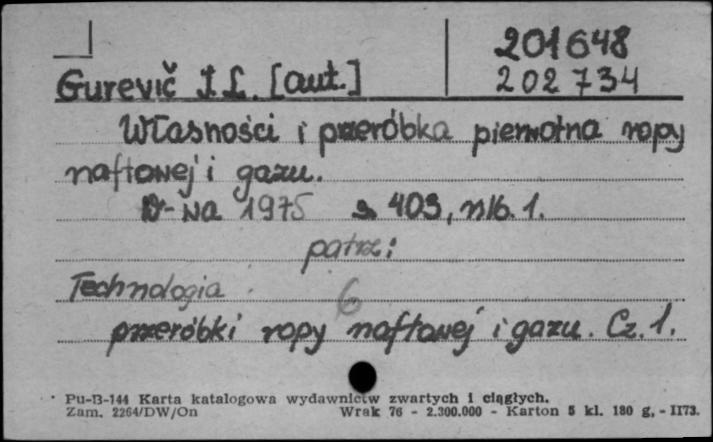 201648
Gurevič I. L. [aut.] 202734
Własności i przeróbka pierwotna ropy
naftowej i gazu.
W-wa 1975 s. 403, nlb. 1.
patrz:
Technologia
6
przeróbki ropy naftowej i gazu. Cz. 1.
Pu-B-144 Karta katalogowa wydawnictw zwartych i ciągłych.
Zam. 2264/DW/On Wrak 76 - 2.300.000 - Karton 5 kl. 180 g. - II73.